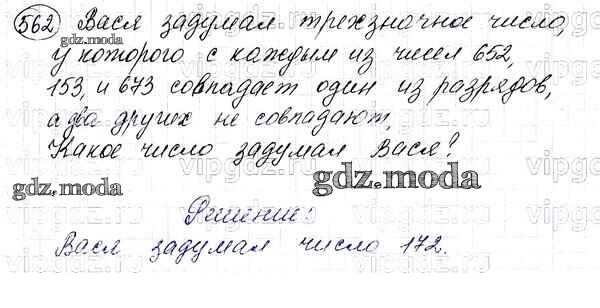 562 Вася задумал трехзначное число,
gdz.moda
у которого с каждым из чисел 652,
153, и 673 совпадает один из разрядов,
а два других не совпадают,
Какое число задумал Вася?
gdz.moda
gdz.moda
Решение:
Вася задумал число 172.